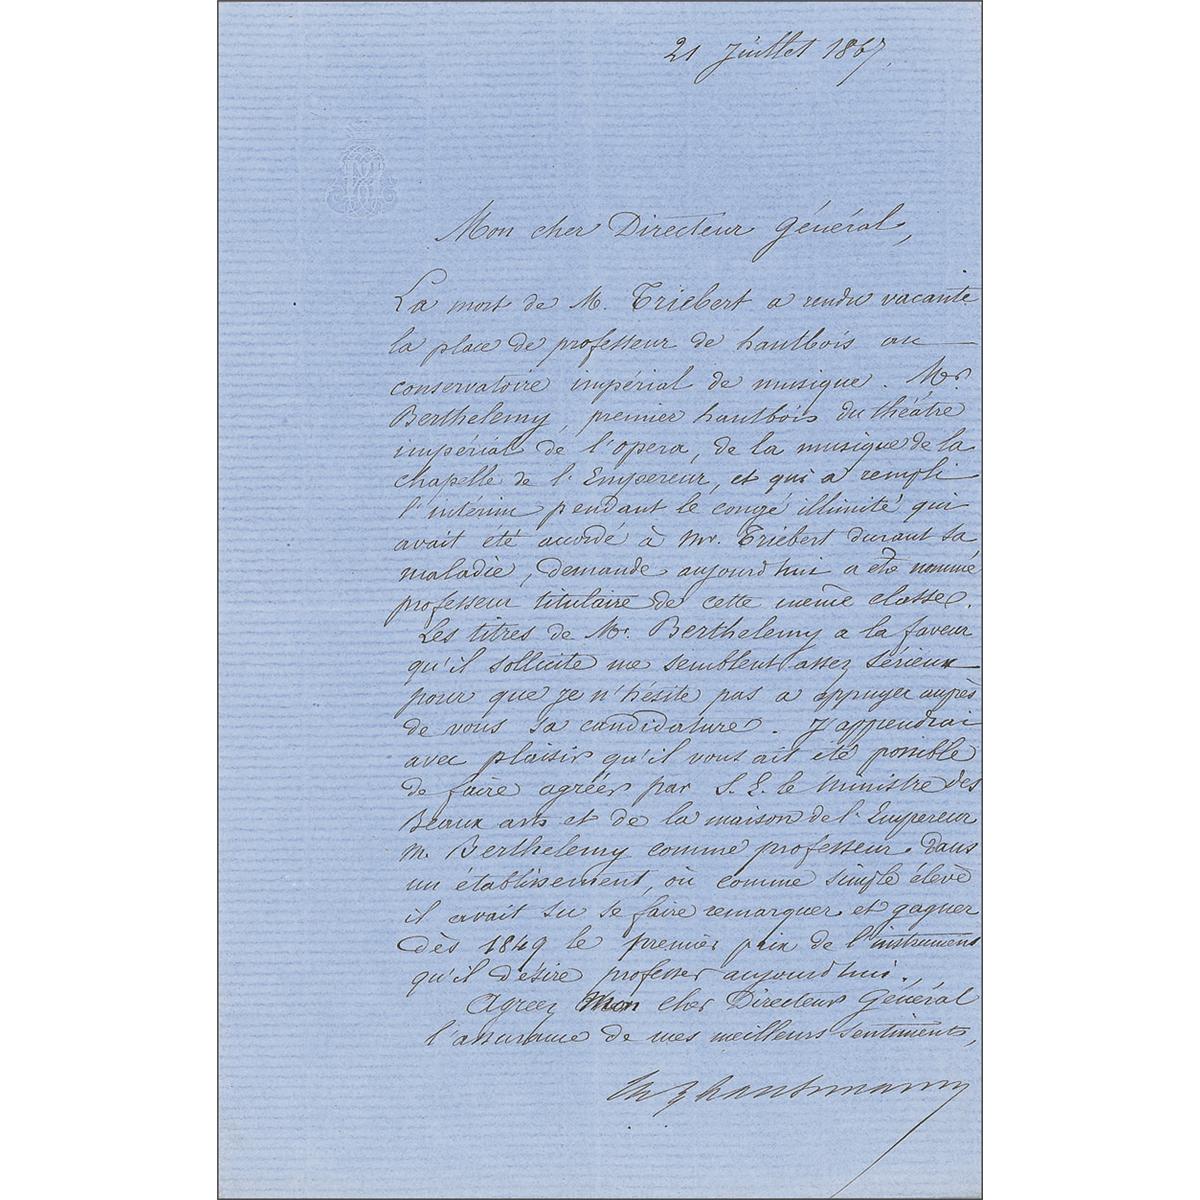 21 Juillet 1867.
Mon cher Directeur Général,
La mort de M. Triebert a rendu vacante
la place de professeur de hautbois au
conservatoire impérial de musique. Mr
Berthelemy, premier hautbois du théâtre
impérial de l'opera, de la musique de la
chapelle de l'Empereur, et qui a rempli
l'intérim pendant le congé illimité qui
avait été accordé à Mr. Triebert durant sa
maladie, demande aujourd'hui a etè nommé
professeur titulaire de cette même classe.
Les titres de Mr. Berthelemy a la faveur
qu'il sollicite me semblent assez sérieux
pour que je n'hésite pas a appuyer auprès
de vous sa candidature. J'apprendrai
avec plaisir qu'il vous ait été possible
de faire agréer par S. E. le Ministre des
Beaux arts et de la maison de l'Empereur
M. Berthelemy comme professeur dans
un établissement, où comme simple élevè
il avait su se faire remarquer et gagner
Dès 1849 le premier prix de l'instrument
qu'il désire professer aujourd'hui.
Agreez Mon cher Directeur Général
l'assurance de mes meilleurs sentiments,